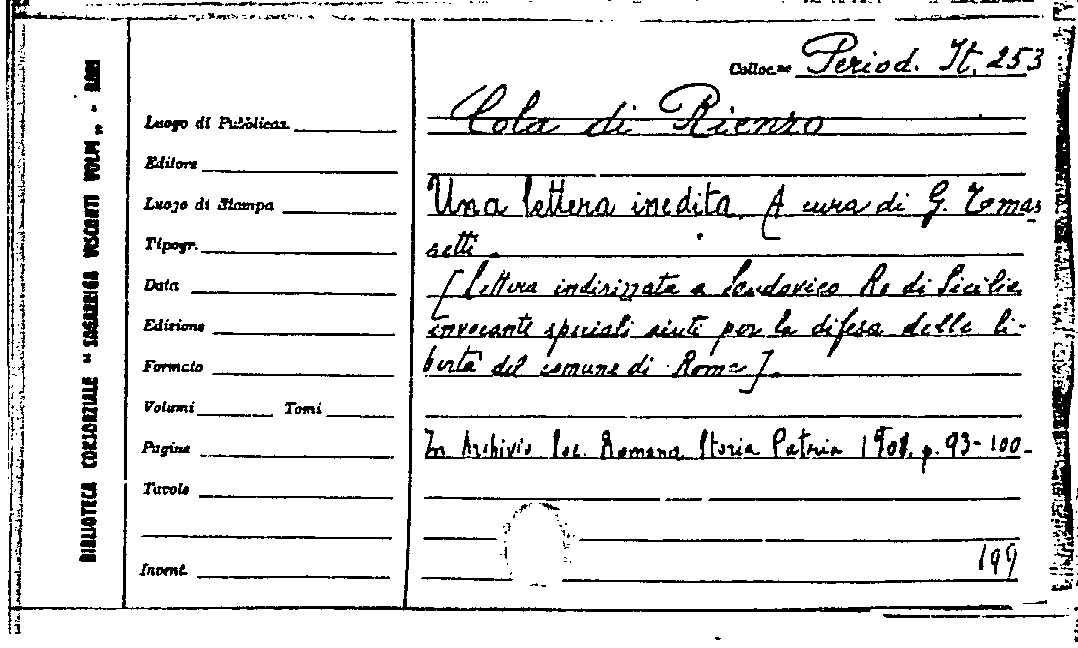 Colloc.ne Period. It. 253
Cola di Rienzo
Luogo di Pubblicaz.
Editore
Luogo di Stampa
Tipogr.
Data
Edizione
Formato
Volumi Tomi
Pagine
Tavole
Invent.
Una lettera inedita. A cura di G. Tomas
setti.
[Lettera indirizzata a Ludovico Re di Sicilia
invocante speciali aiuti per la difesa delle li-
bertà del comune di Roma].
In Archivio Soc. Romana Storia Patria 1908, p. 93-100-
199
BIBLIOTECA CONSORZIALE "SAGARRIGA VISCONTI VOLPI" - BARI